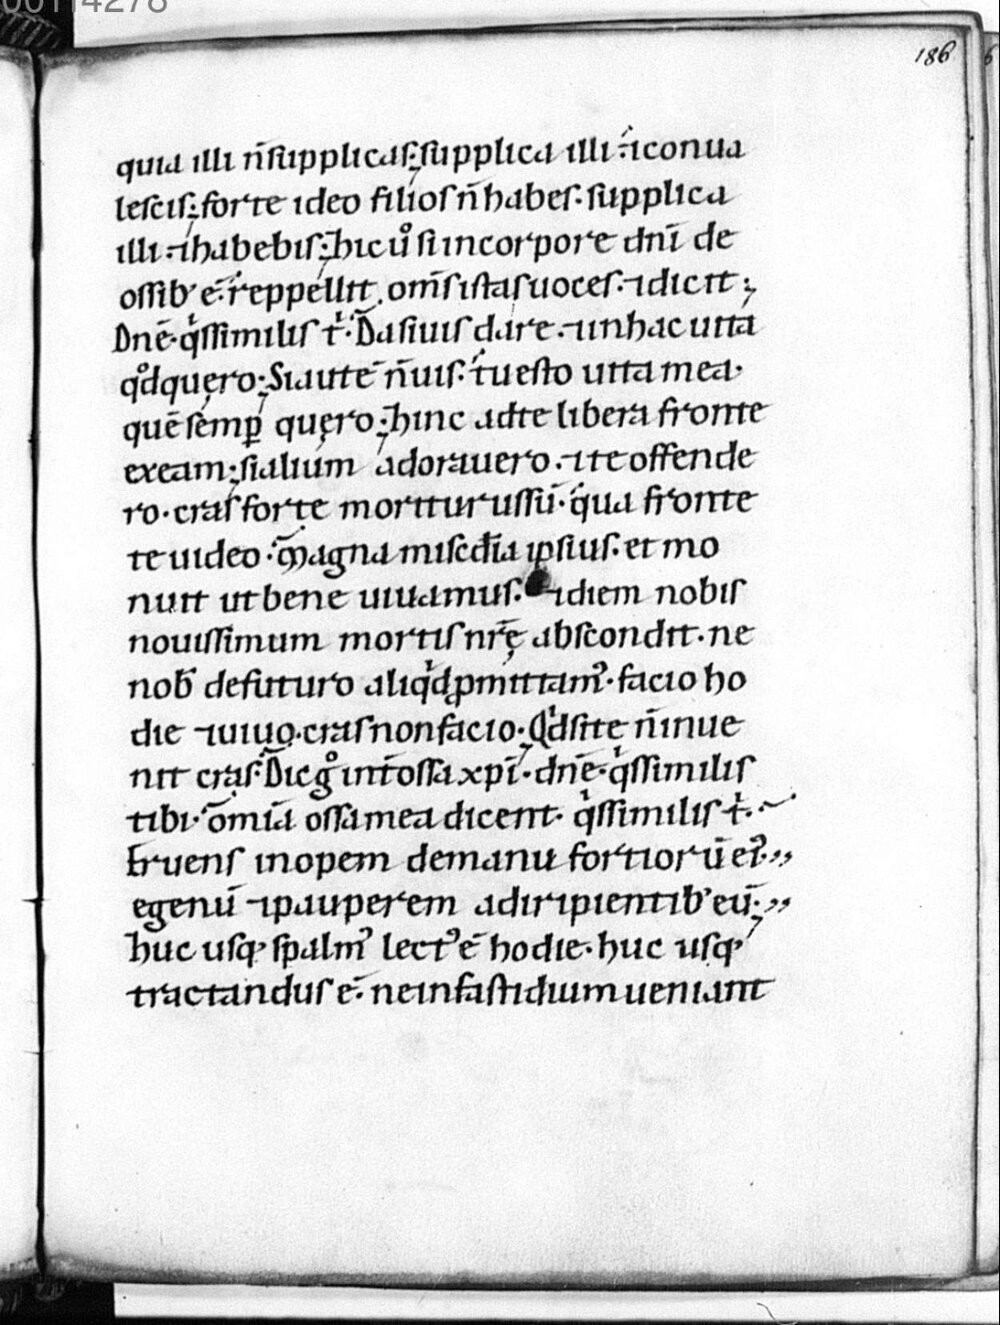 00114278
186
quia illi n̄ supplicas; supplica illi ⁊ conua
lescis; forte ideo filios n̄ habes. supplica
illi ⁊ habebis; hic uº si in corpore dn̄i de
ossib' ē. reppellit om̄s istas uoces. ⁊ dicit;
Dnē. qͥs similis tͥ. Da si uis dare. ⁊ in hac uita
qd̊ quęro; Si autē n̄ uis. tu esto uita mea.
quē semꝑ quęro; hinc ad te libera fronte
exeam; si alium adorauero. ⁊ te offende
ro. cras forte moriturus sū. qua fronte
te uideo. Magna mis̄cdīa ipsius. et mo
nuit ut bene uiuamus. ⁊ diem nobis
nouissimum mortis nr̄ę abscondit. ne
nob̄ de futuro aliqͥd ꝓmittam'. facio ho
die ⁊ uiuo. cras non facio. Qͥd si te n̄ inue
nit cras. Dic gͦ int̄ ossa xpī. dnē. qͥs similis
tibi. om̄ia ossa mea dicent. qͥs similis tͥ.
Eruens inopem de manu fortiorū ei'.
egenū ⁊ pauperem a diripientib' eū;
huc usq' psalm' lect' ē hodie. huc usq'
tractandus ē. ne in fastidium ueniant